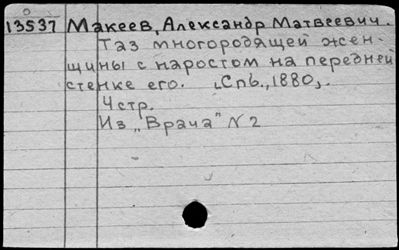 13537 Макеев, Александр Матвеевич.
Таз многородящей жен-
щины с наростом на передней
стенке его. [Спб., 1880].
4 стр.
Из „Врача" N 2